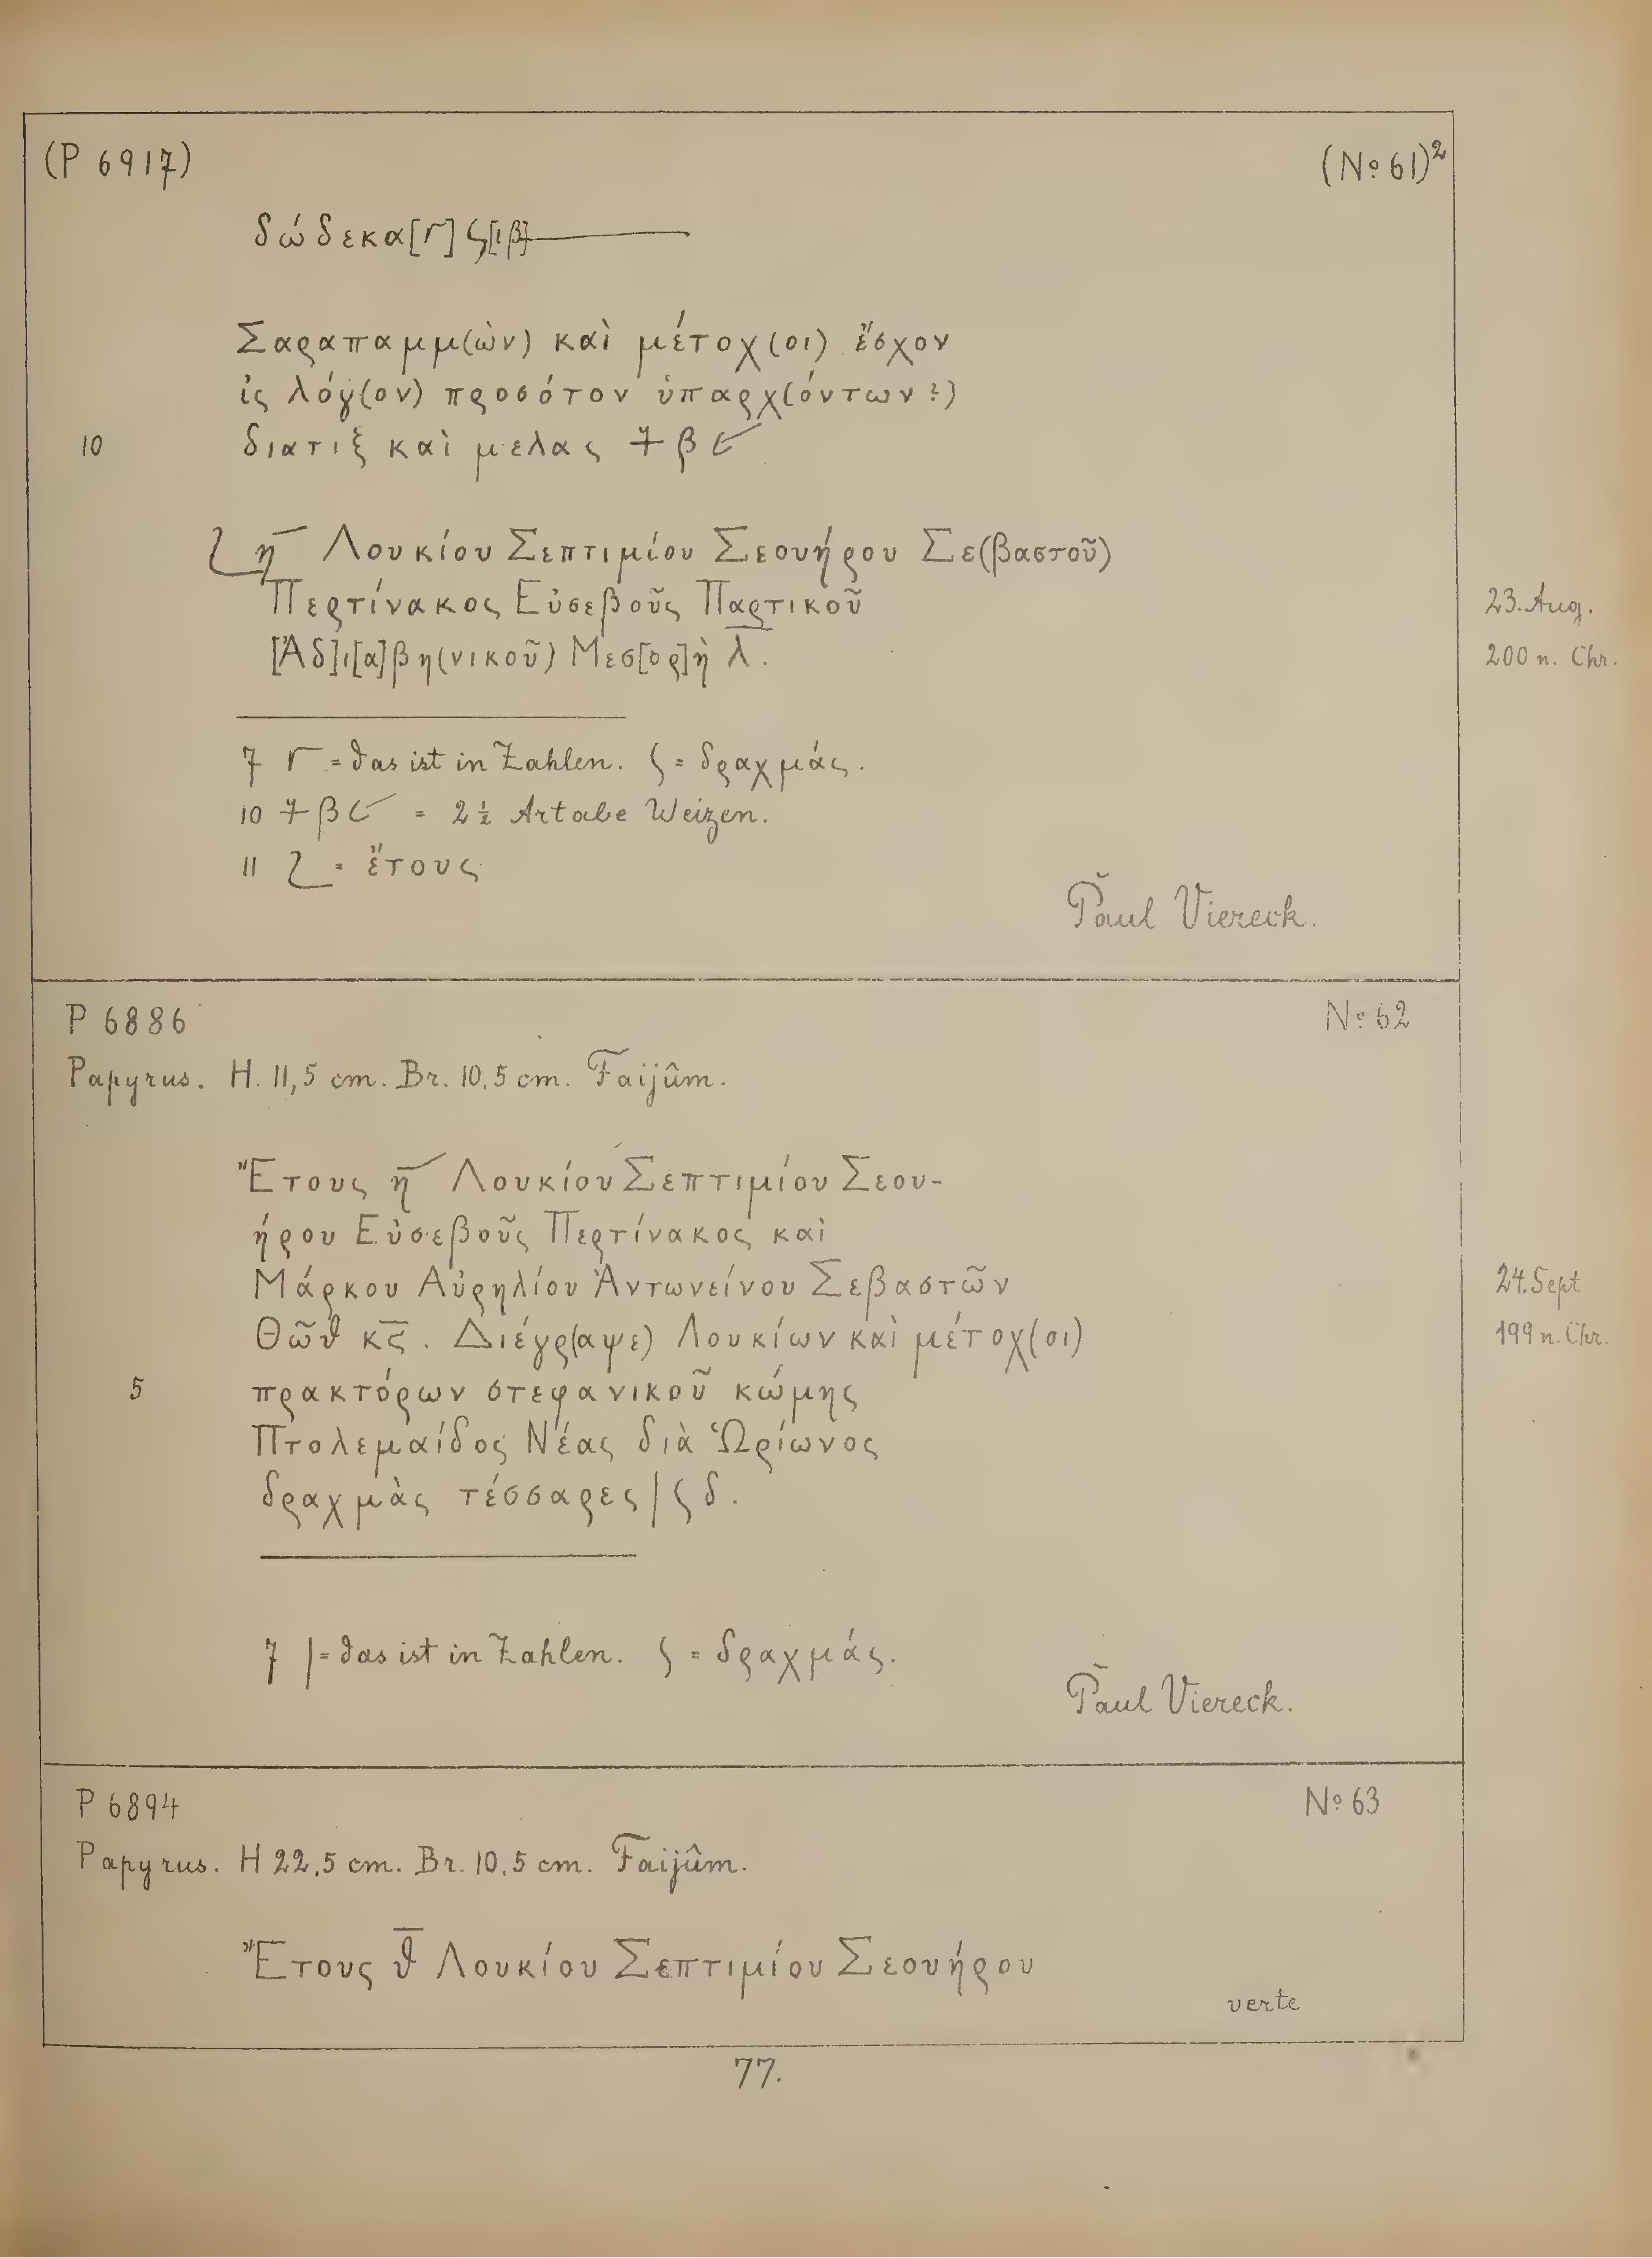 (P 6917)
(No 61)²
δώδεκα[Γ] ς[ιβ]
Σαραπαμμ(ὼν) καὶ μέτοχ(οι) ἔσχον
ἰς λόγ(ον) προσότον ὑπαρχ(όντων?)
10 διατιξ καὶ μελας β
η Λουκίου Σεπτιμίου Σεουήρου Σε(βαστοῦ)
Περτίνακος Εὐσεβοῦς Παρτικοῦ
23. Aug.
[Ἀδ]ι[α]βη(νικοῦ) Μεσ[ορ]ὴ λ̅.
200 n. Chr.
7 Γ = das ist in Zahlen. ς = δραχμάς.
10 β = 2½ Artabe Weizen.
11 = ἔτους
Paul Viereck.
P 6886
No 62
Papyrus. H. 11,5 cm. Br. 10,5 cm. Faijûm.
Ἔτους η̅ Λουκίου Σεπτιμίου Σεου-
ήρου Εὐσεβοῦς Περτίνακος καὶ
Μάρκου Αὐρηλίου Ἀντωνείνου Σεβαστῶν
24. Sept
Θῶθ κϛ̅. Διέγρ(αψε) Λουκίων καὶ μέτοχ(οι)
199 n. Chr.
5 πρακτόρων στεφανικοῦ κώμης
Πτολεμαίδος Νέας διὰ Ὡρίωνος
δραχμὰς τέσσαρες / ς δ.
7 / = das ist in Zahlen. ς = δραχμάς.
Paul Viereck.
P 6894
No 63
Papyrus. H 22,5 cm. Br. 10,5 cm. Faijûm.
Ἔτους θ̅ Λουκίου Σεπτιμίου Σεουήρου
verte
77.